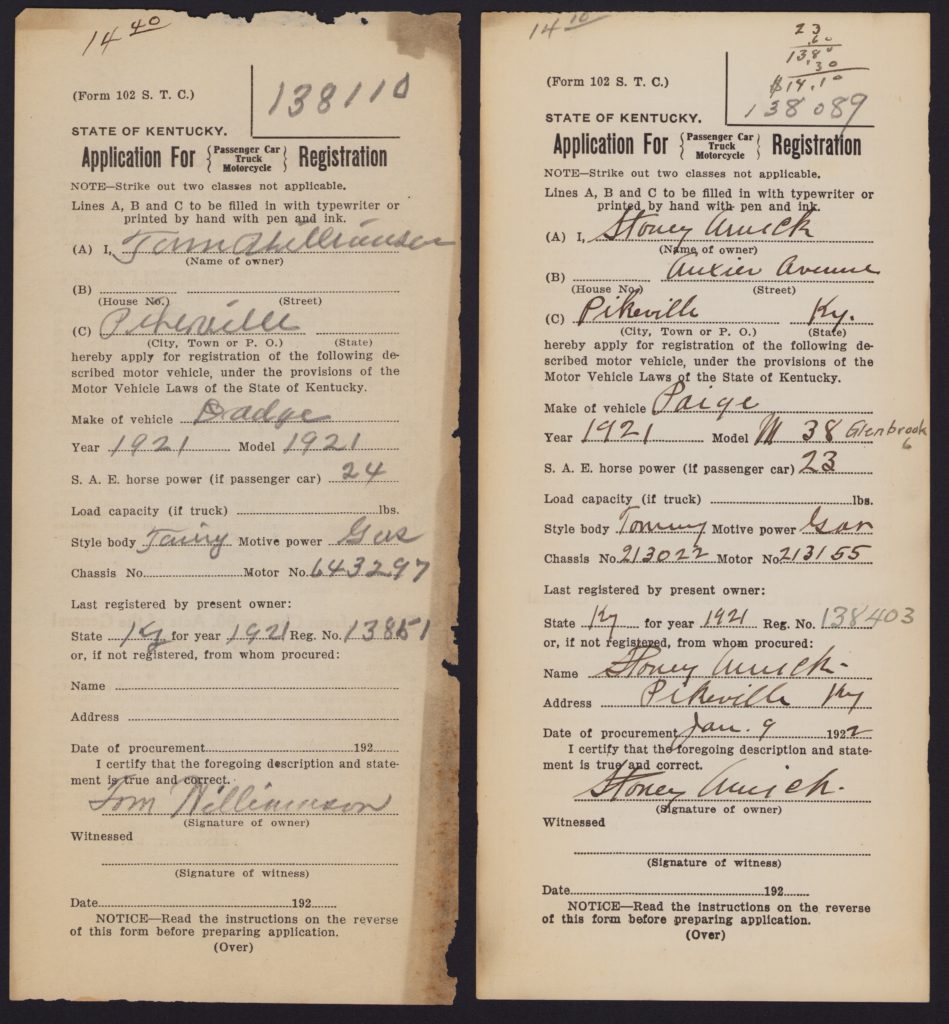 14 40
138110
(Form 102 S. T. C.)
STATE OF KENTUCKY.
Application For { Passenger Car Truck Motorcycle } Registration
NOTE—Strike out two classes not applicable.
Lines A, B and C to be filled in with typewriter or
printed by hand with pen and ink.
(A) I, Tom Williamson
(Name of owner)
(B)
(House No.) (Street)
(C) Pikeville
(City, Town or P. O.) (State)
hereby apply for registration of the following de-
scribed motor vehicle, under the provisions of the
Motor Vehicle Laws of the State of Kentucky.
Make of vehicle Dadge
Year 1921 Model 1921
S. A. E. horse power (if passenger car) 24
Load capacity (if truck) lbs.
Style body Motive power Gas
Chassis No. Motor No. 643297
Last registered by present owner:
State Ky for year 1921 Reg. No.
or, if not registered, from whom procured:
Name
Address
Date of procurement 192
I certify that the foregoing description and state-
ment is true and correct.
Tom Williamson
(Signature of owner)
Witnessed
(Signature of witness)
Date 192
NOTICE—Read the instructions on the reverse
of this form before preparing application.
(Over)
14 10
23
.60
13.80
.30
$14.10
138089
(Form 102 S. T. C.)
STATE OF KENTUCKY.
Application For { Passenger Car Truck Motorcycle } Registration
NOTE—Strike out two classes not applicable.
Lines A, B and C to be filled in with typewriter or
printed by hand with pen and ink.
(A) I, Stoney Amick
(Name of owner)
(B) Auxier Avenue
(House No.) (Street)
(C) Pikeville Ky.
(City, Town or P. O.) (State)
hereby apply for registration of the following de-
scribed motor vehicle, under the provisions of the
Motor Vehicle Laws of the State of Kentucky.
Make of vehicle Paige
Year 1921 Model M 38 Glenbrook
6
S. A. E. horse power (if passenger car) 23
Load capacity (if truck) lbs.
Style body Motive power Gas
Chassis No. 213022 Motor No. 213155
Last registered by present owner:
State Ky for year 1921 Reg. No. 138403
or, if not registered, from whom procured:
Name Stoney Amick
Address Pikeville Ky
Date of procurement Jan. 9 1922
I certify that the foregoing description and state-
ment is true and correct.
Stoney Amick.
(Signature of owner)
Witnessed
(Signature of witness)
Date 192
NOTICE—Read the instructions on the reverse
of this form before preparing application.
(Over)